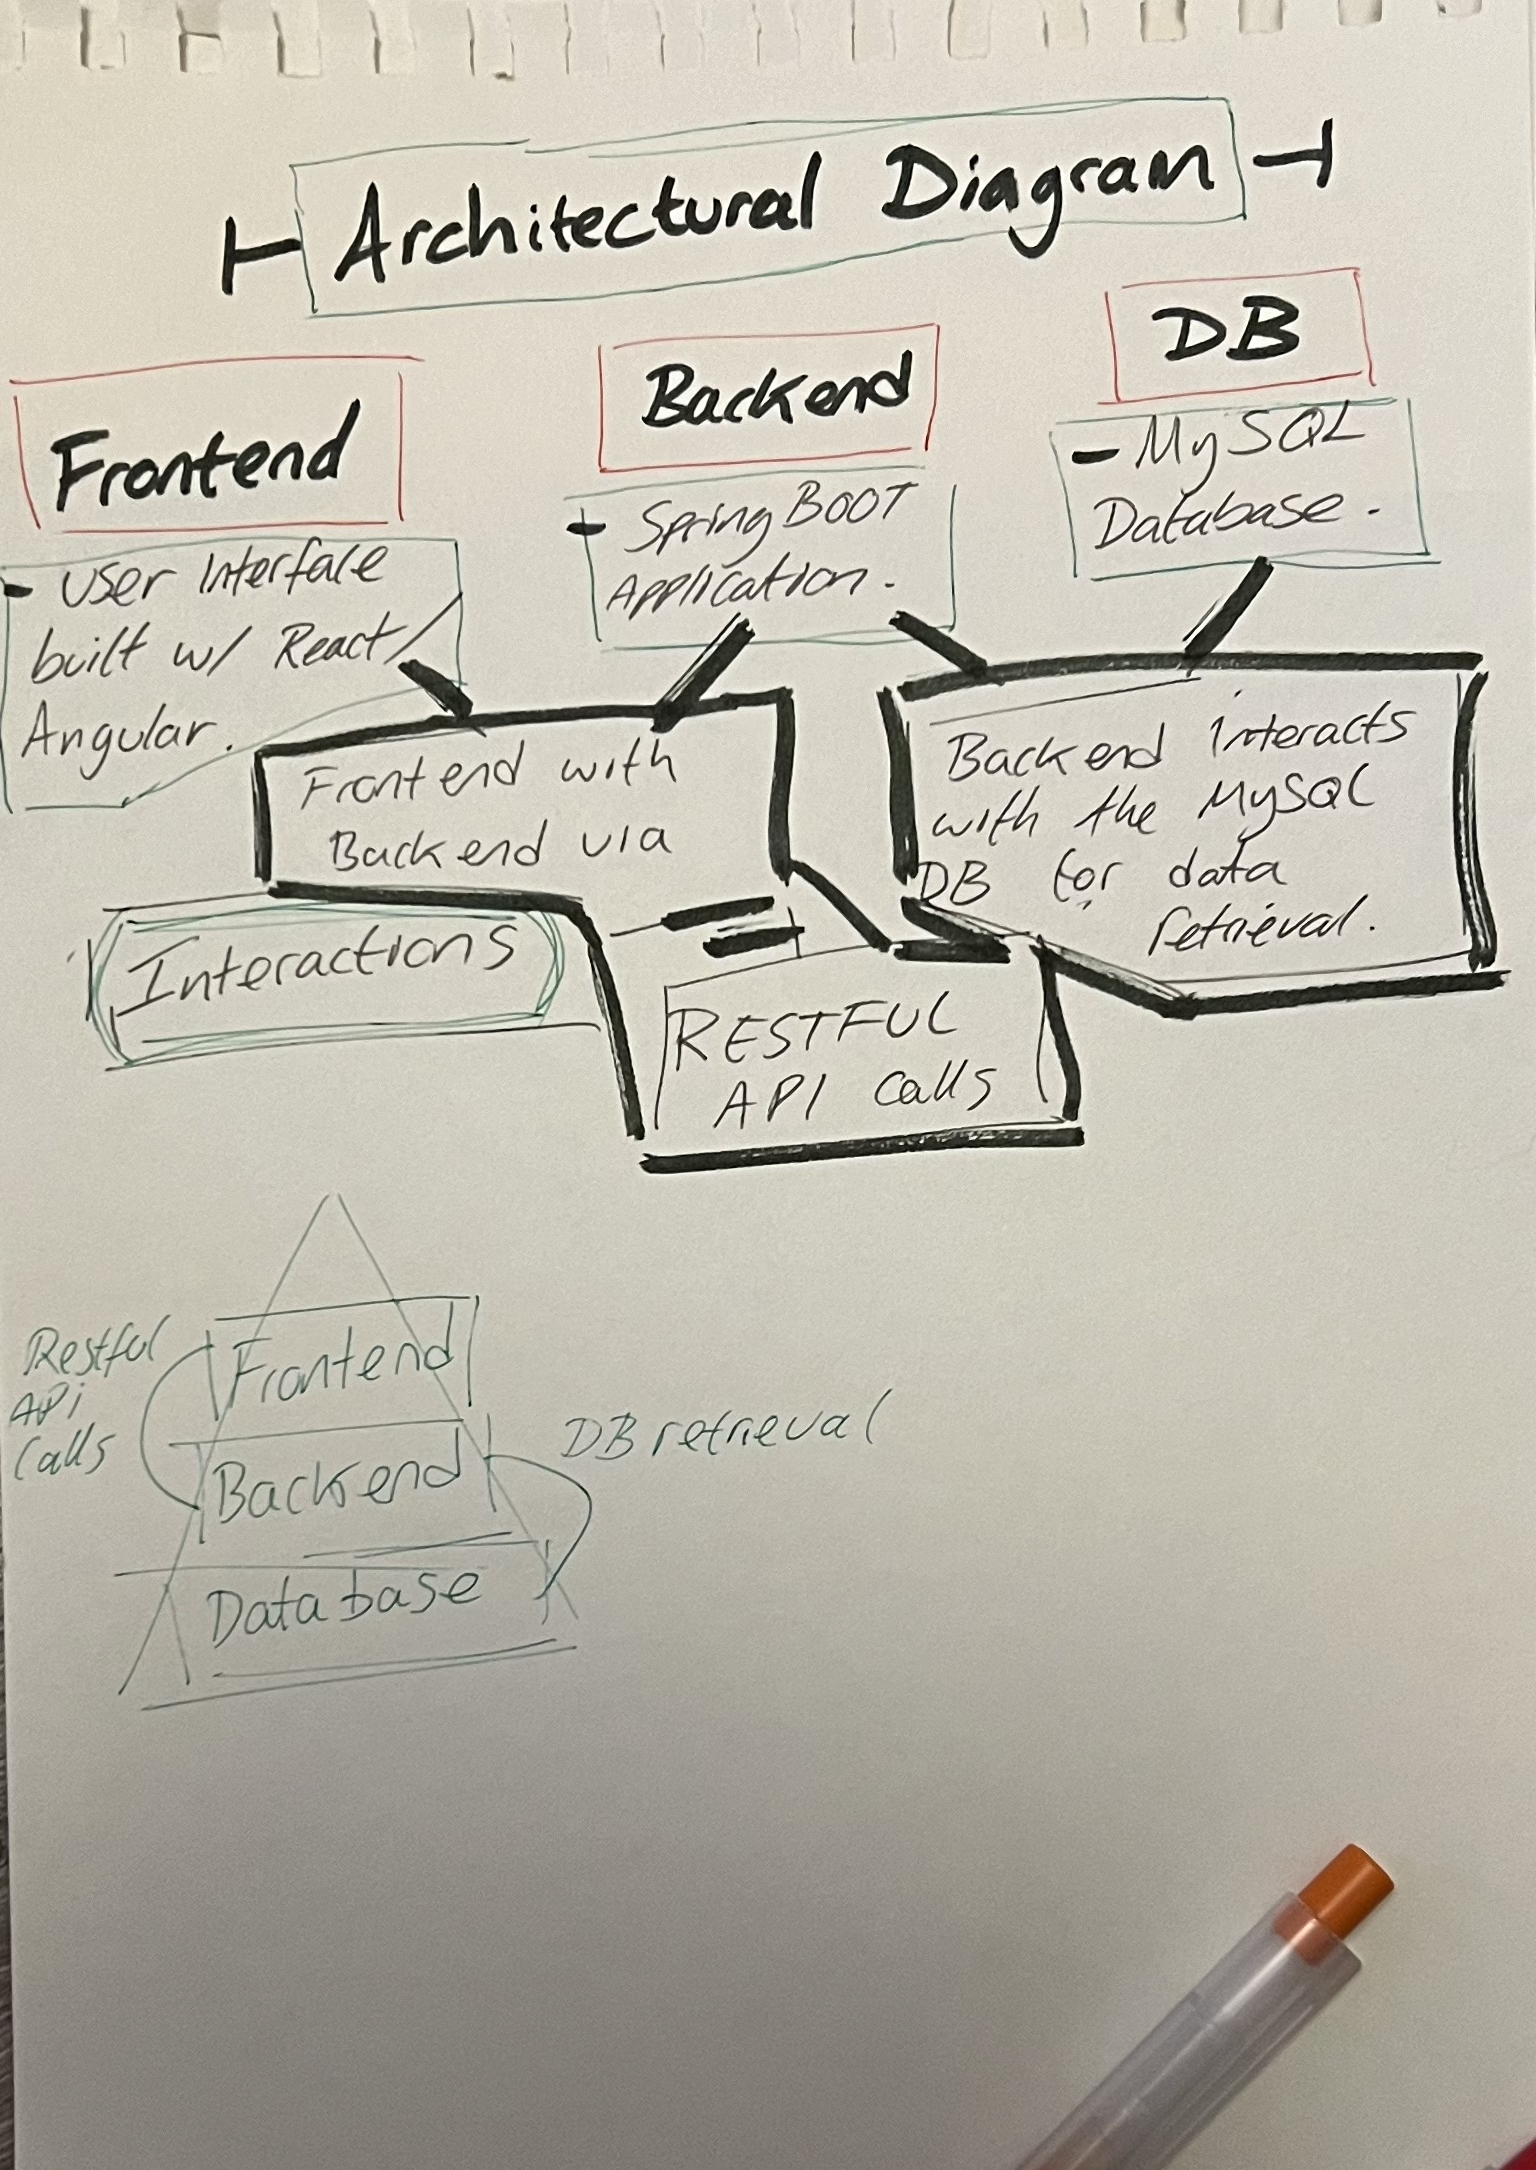 Architectural Diagram
Frontend
- User Interface
built w/ React/
Angular.
Backend
- Spring BOOT
Application.
DB
- MySQL
Database.
Frontend with
Backend via
Interactions
RESTFUL
API Calls
Backend interacts
with the MySQL
DB for data
retrieval.
Restful
API
Calls
Frontend
Backend
Database
DB retrieval